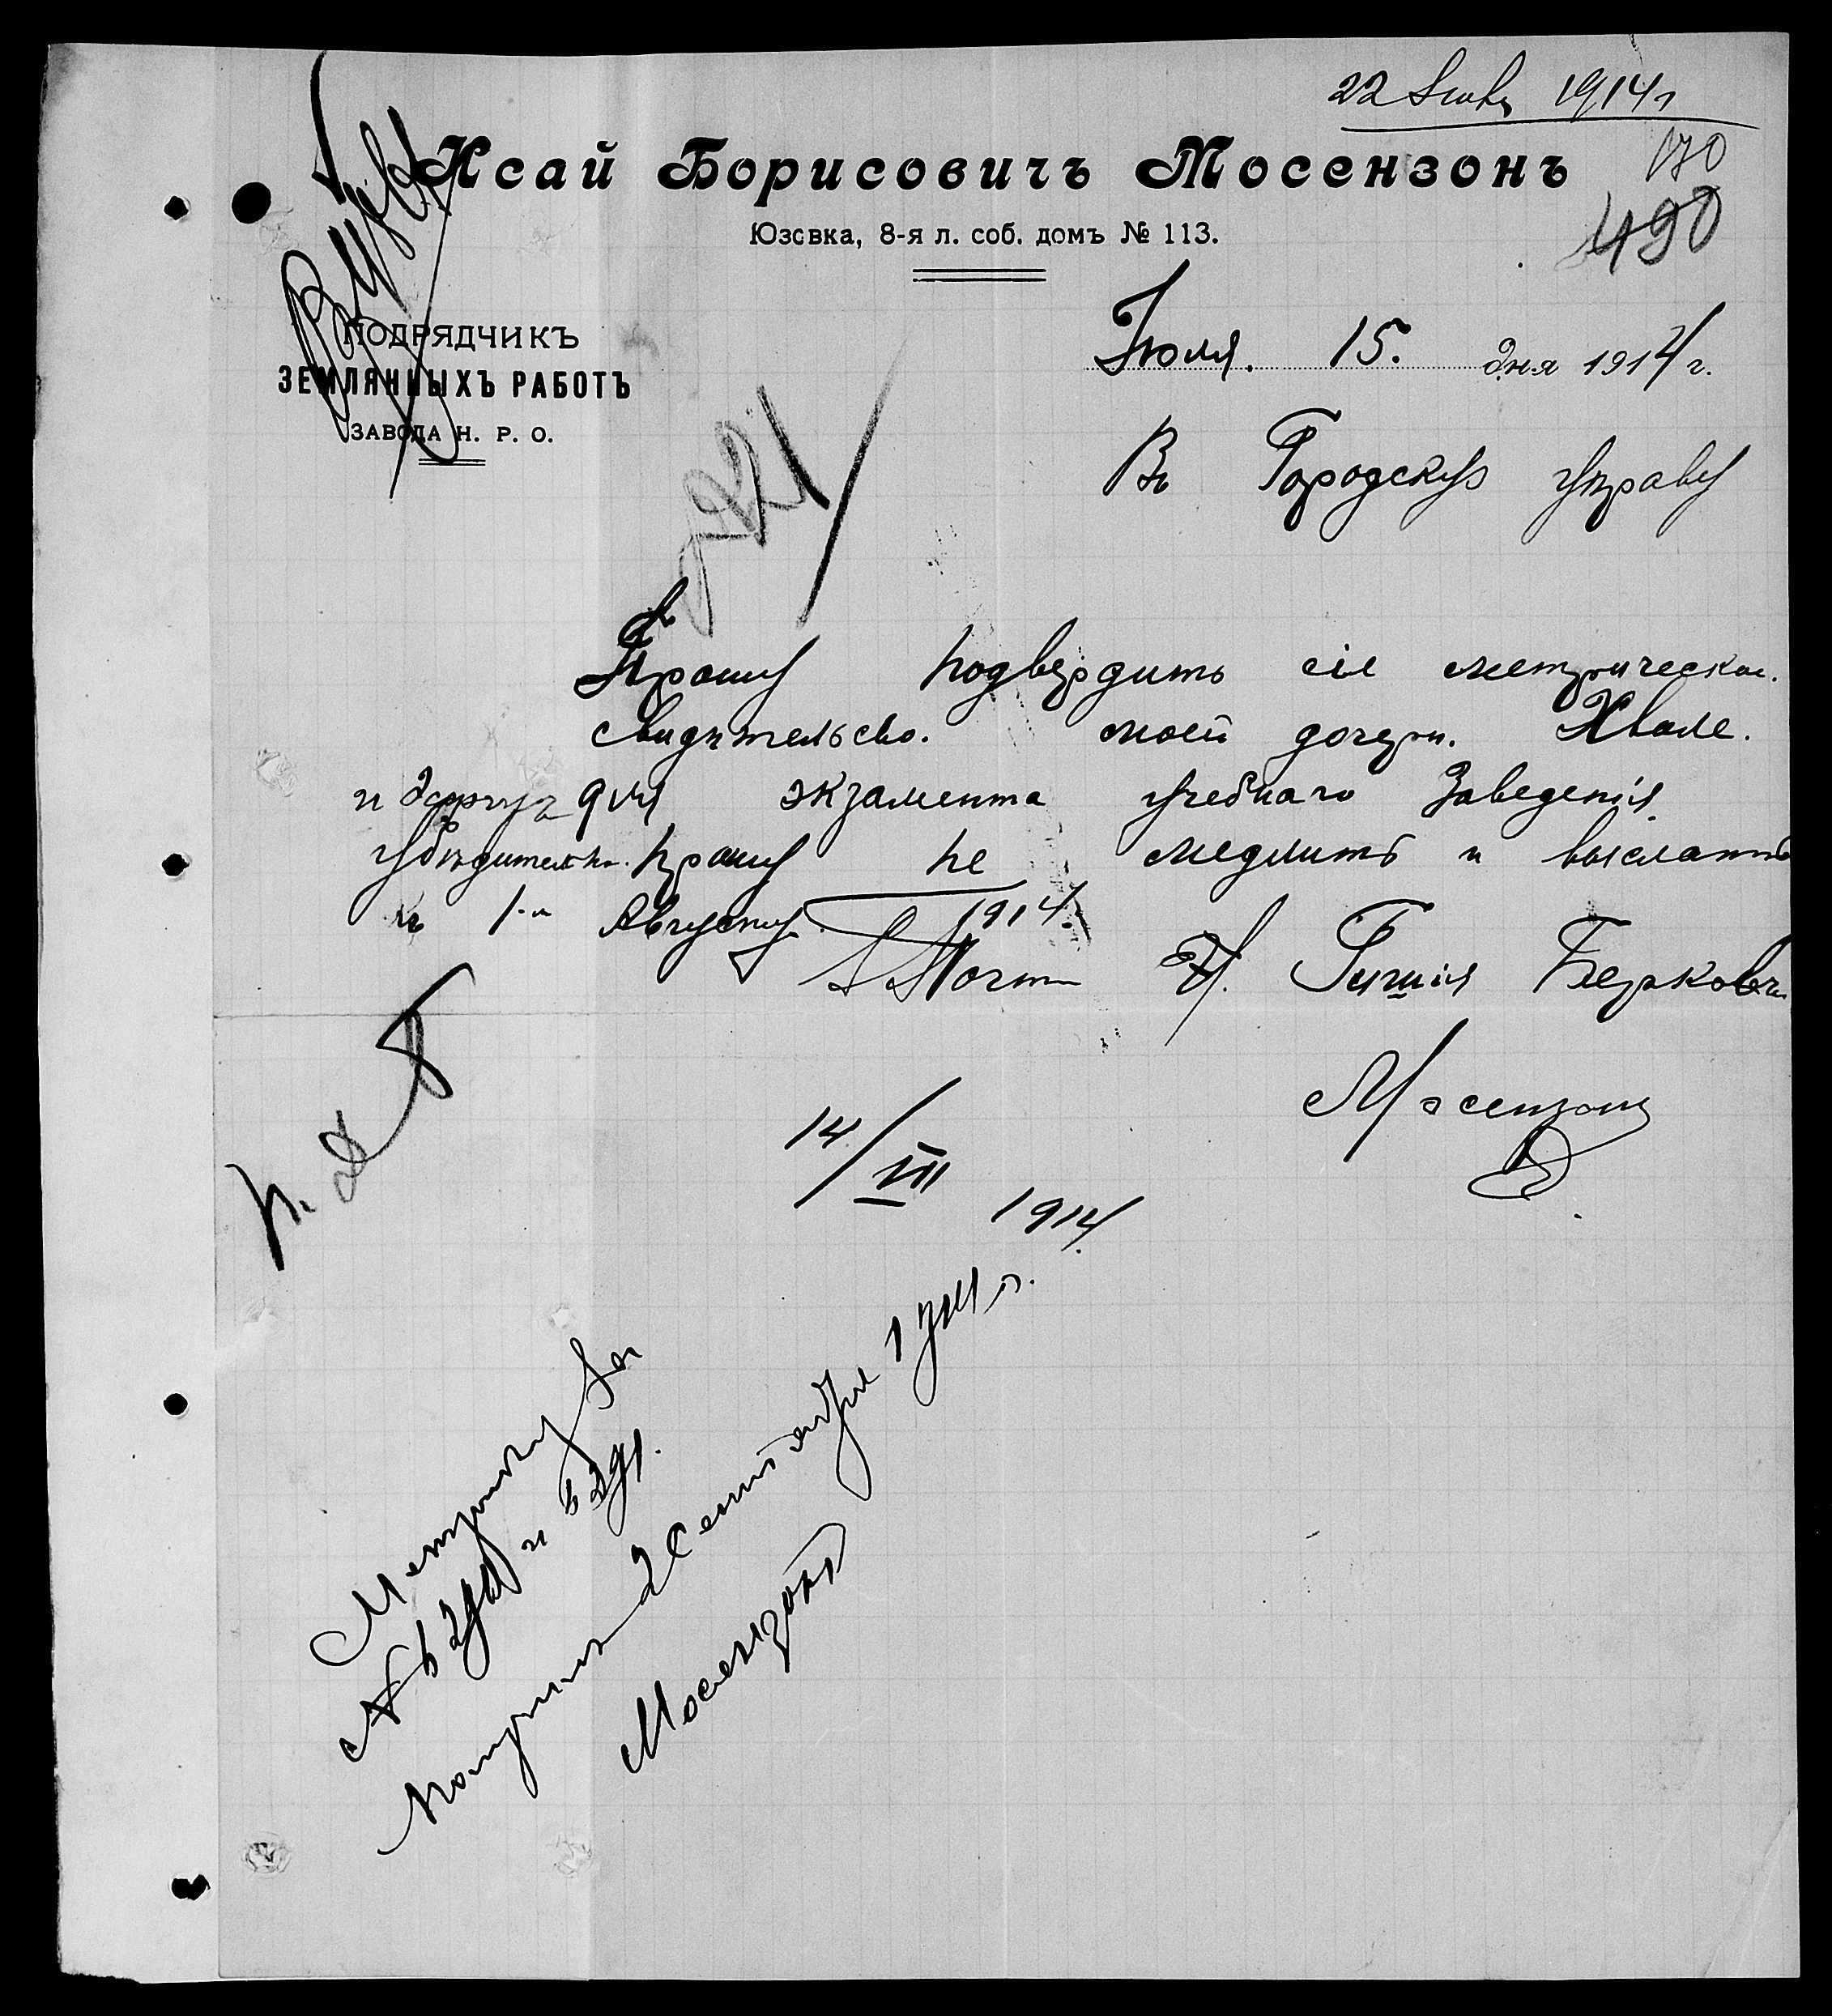 22 1914 г
Исай Борисовичъ Мосензонъ
170
490
Юзовка, 8-я л. соб. домъ № 113.
ПОДРЯДЧИКЪ
ЗЕМЛЯННЫХЪ РАБОТЪ
ЗАВОДА Н. Р. О.
Іюля. 15. дня 1914 г.
Въ Городскую управу
Прошу подвердить сіе метрическое.
свидѣтельсво. моей дочери. Хволе.
и для экзамента учебнаго Заведенія
убѣдительно. прошу не медлить и выслать
къ 1-му Августу 1914.
Гишія Берковъ
Мосензонъ
14/VII 1914.
Метрику за
№ и
получилъ 2 Сентября 1914 г.
Мосензонъ